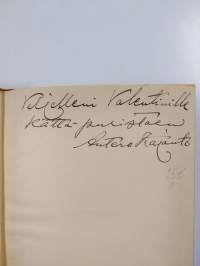 Veljelleni Valentinille
kättä puristaen
Antero Kajanto